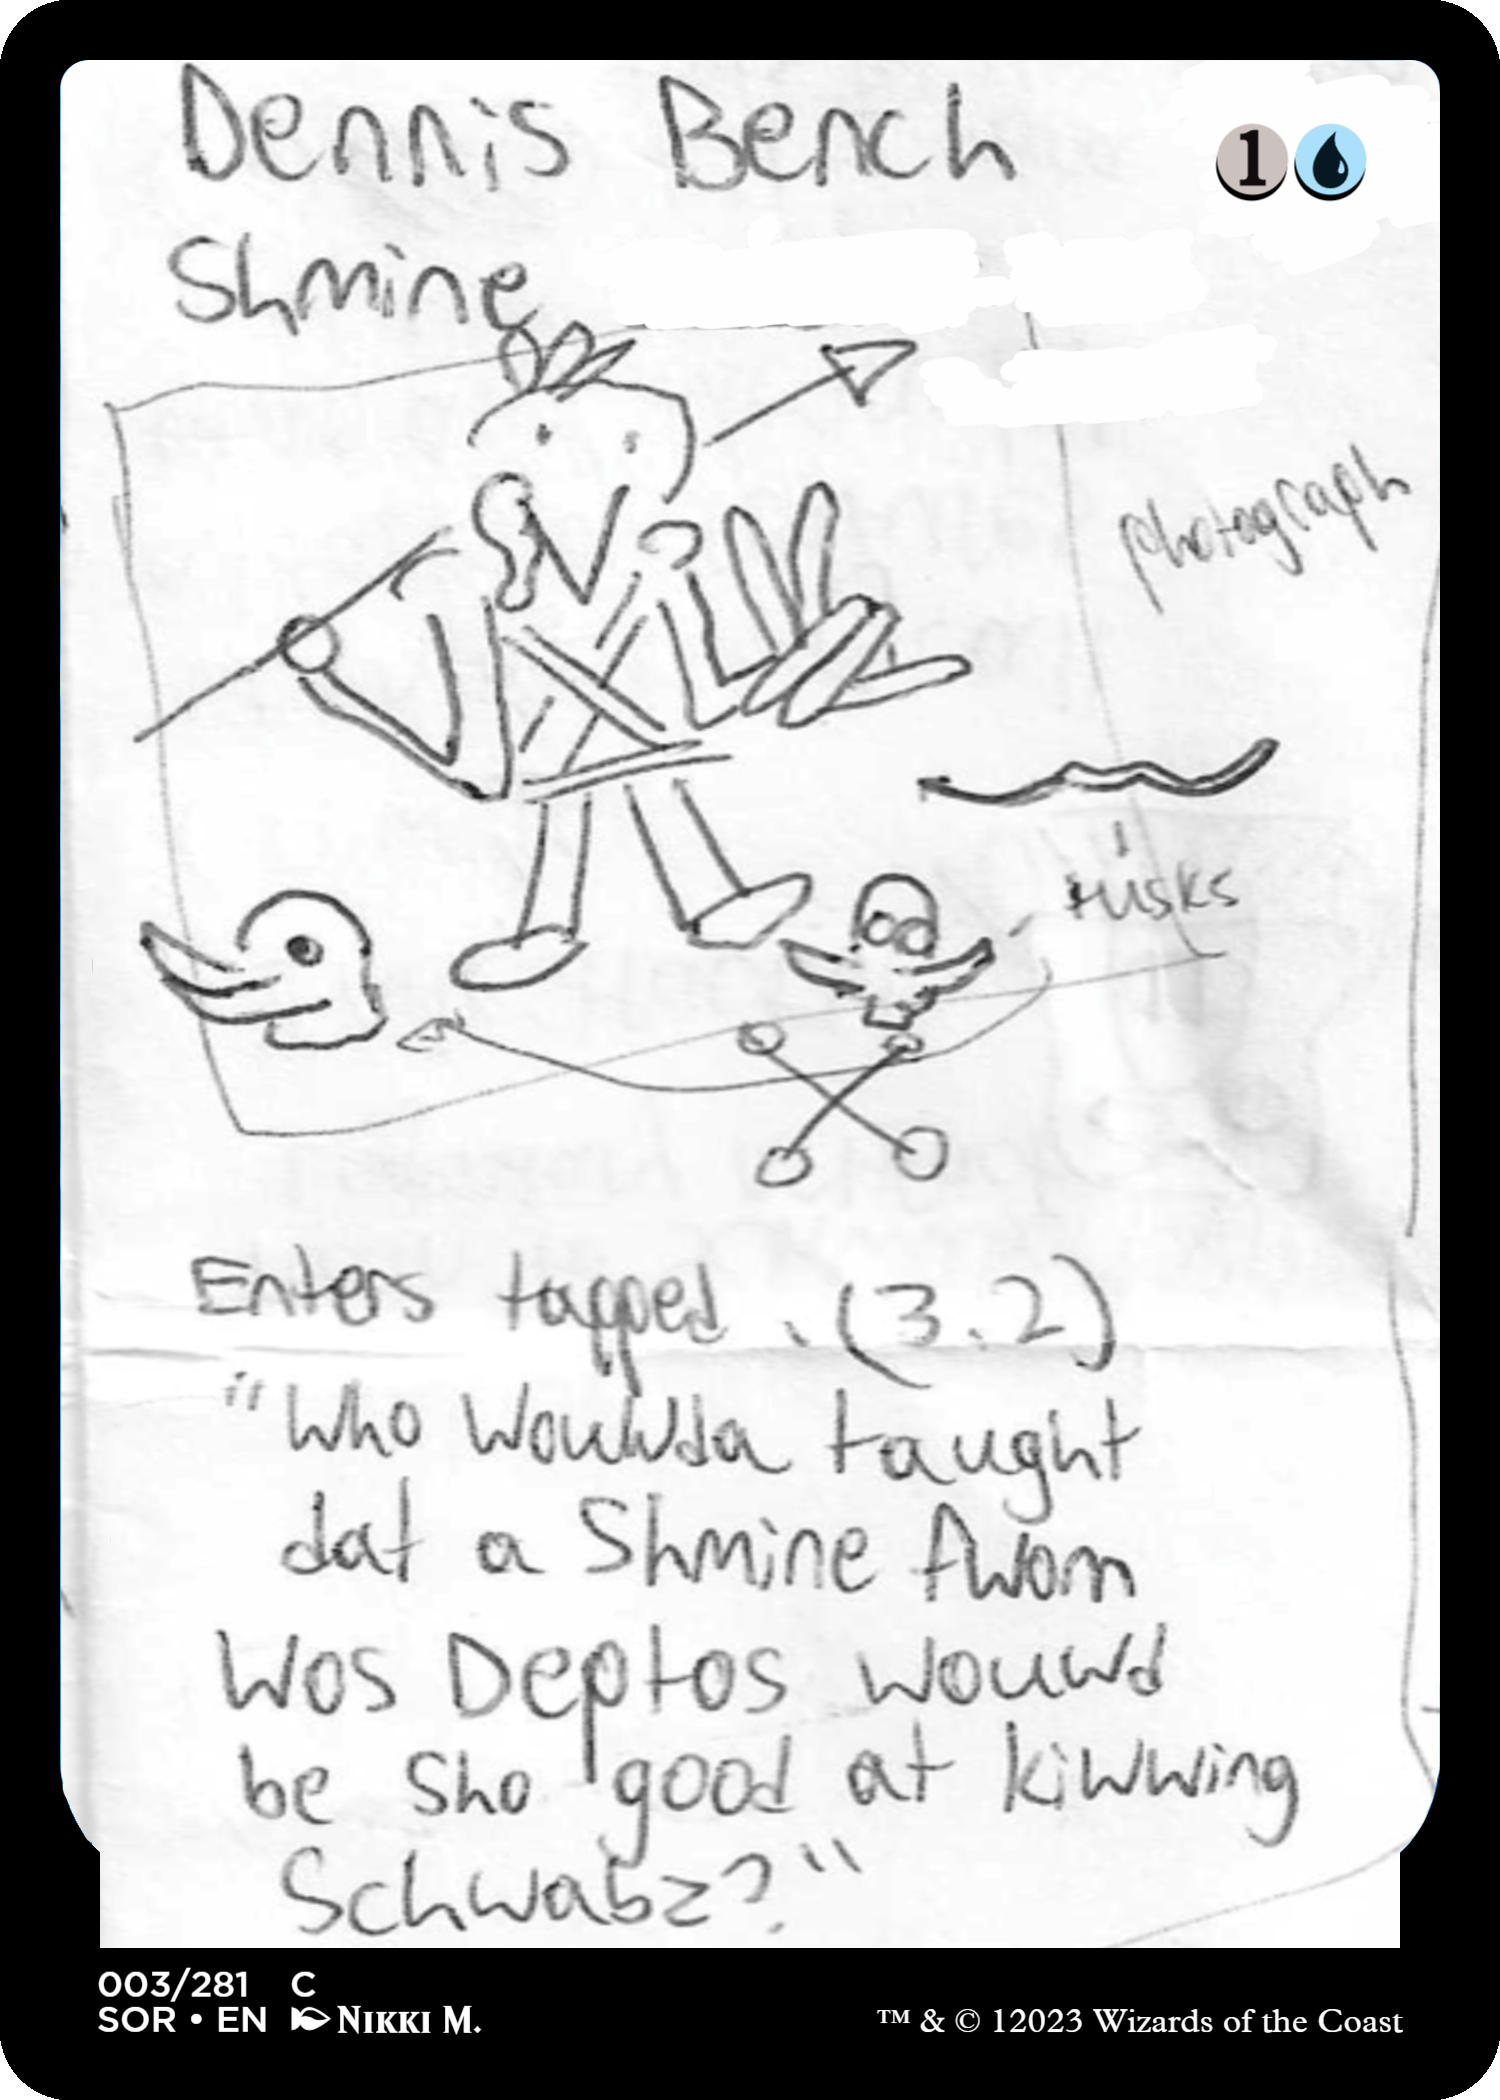 Dennis Bench
1
Shmine
photograph
tusks
Enters tapped. (3.2)
"Who Wouwda taught
dat a Shmine fwom
Wos Deptos wouwd
be Sho good at kiwwing
Schwabz?"
003/281 C
SOR • EN NIKKI M.
™ & © 12023 Wizards of the Coast